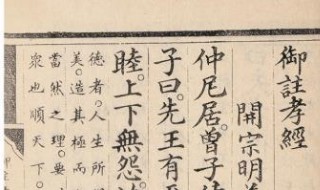 御註孝經
開宗明義
仲尼居。曾子侍
子曰。先王有至
睦。上下無怨。汝
德者。人生所
美。造其極而
當然之理。要
衆也順天下。